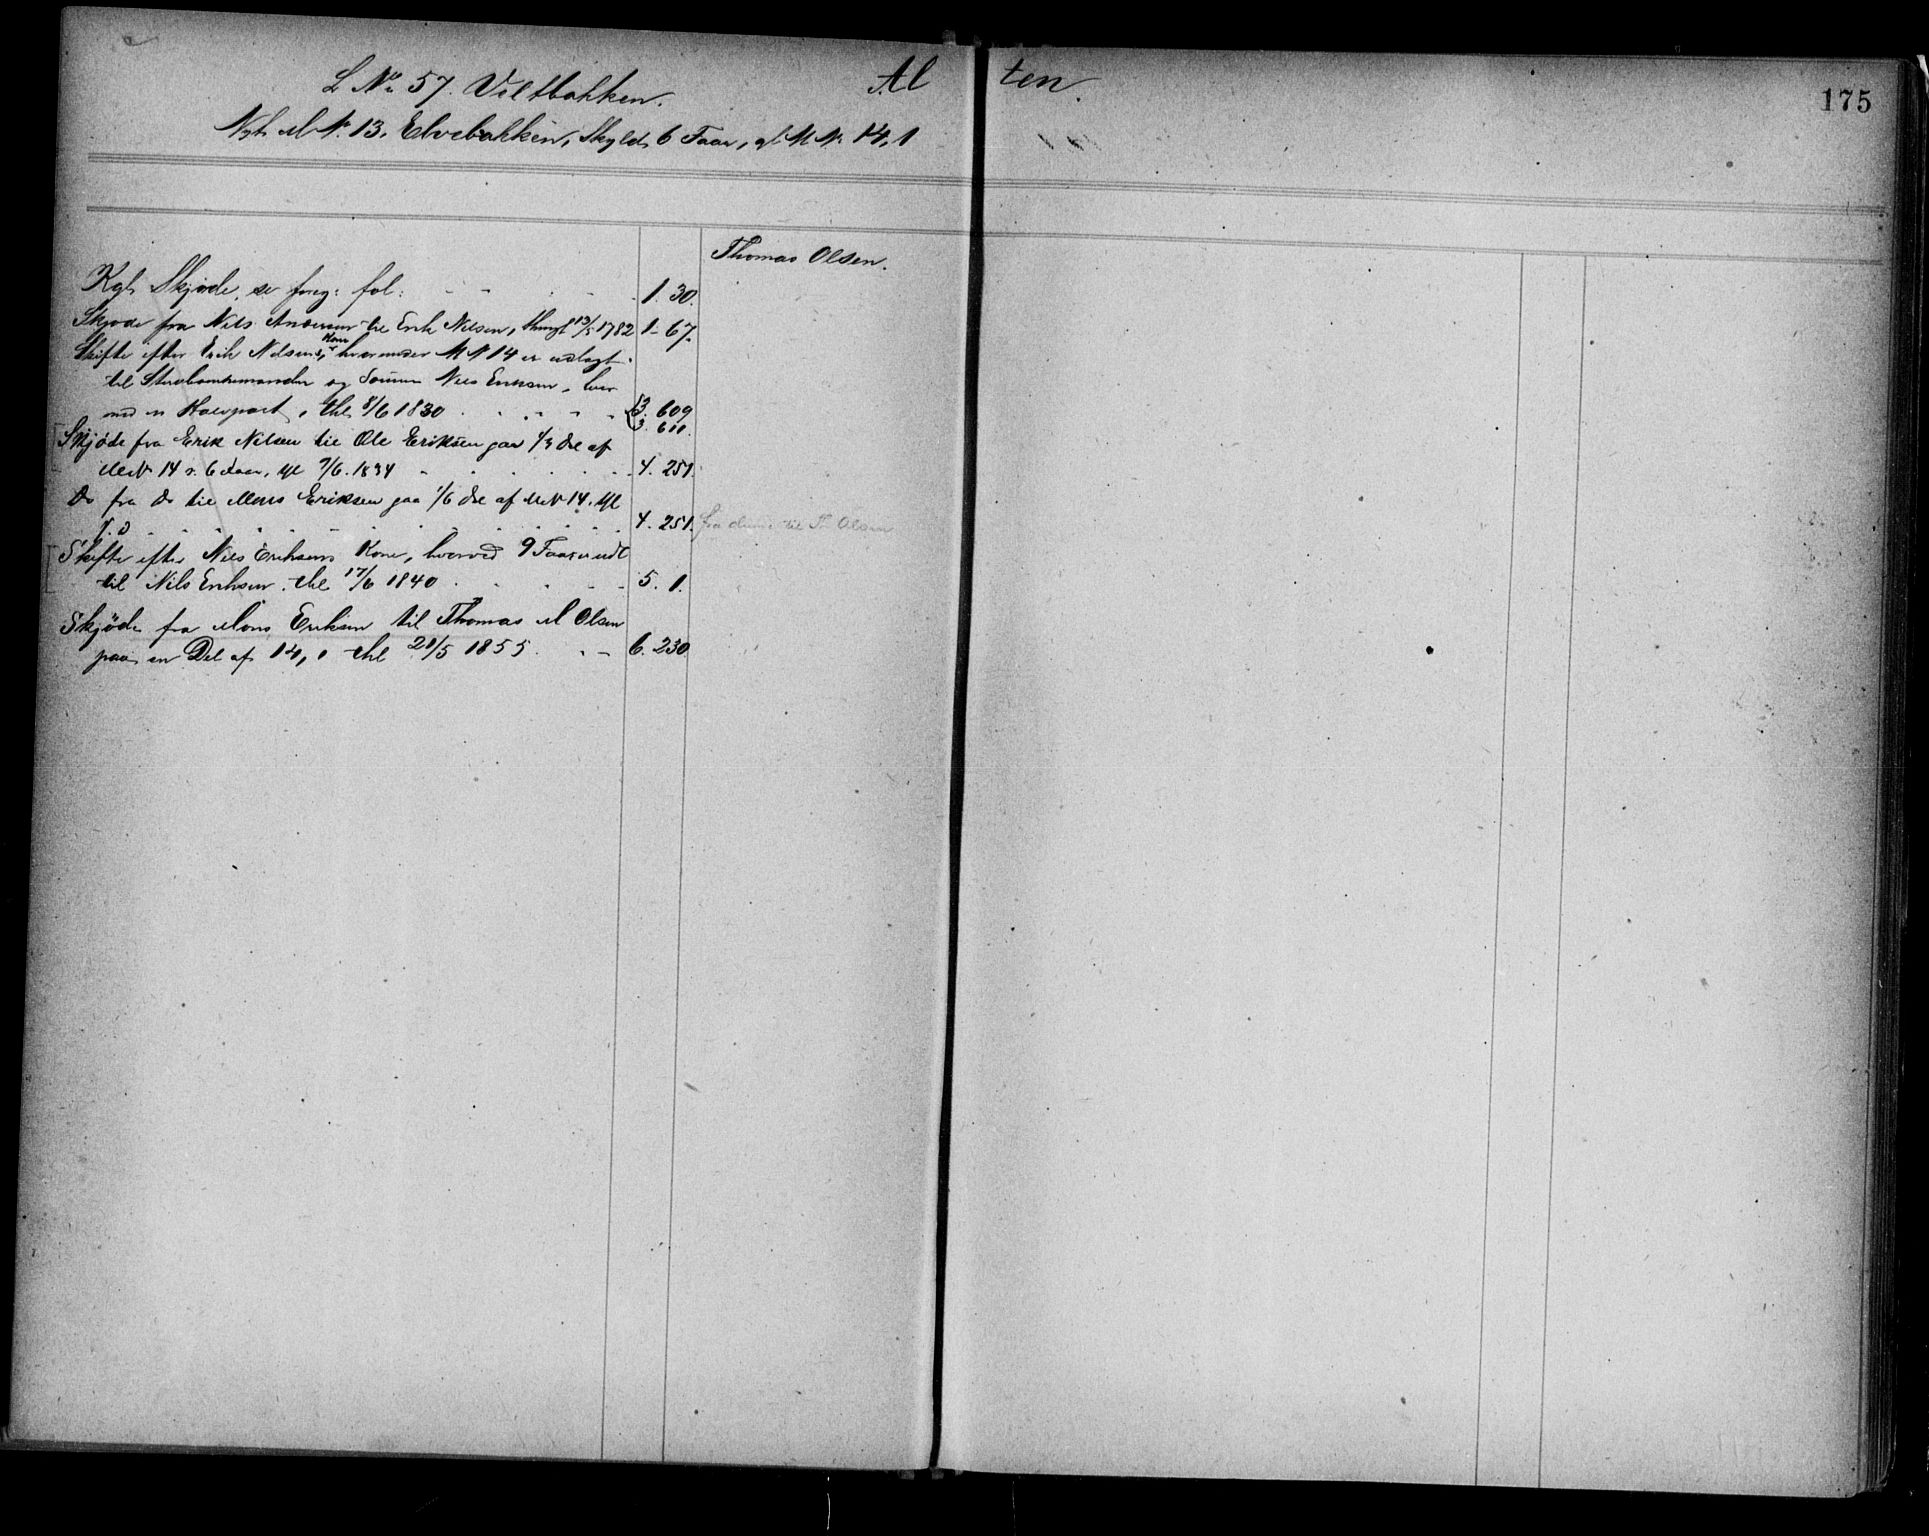 L No 57. Veltbakken.
Alten.
175
Nyt M No. 13, Elvebakken, Skyld 6 Faar, gl. M No 14,1
Thomas Olsen.
Kgl. Skjøde, se foreg. fol: 1. 30.
Skjøde fra Nils Andersen til Erik Nilsen, thingl 13/5 1782 1- 67.
Skifte efter Erik Nilsens Kone, hvorunder M N 14 er udlagt
til Sterbomkemanden og Sønnen Nils Eriksen, hver
med en Halvpart, thl 8/6 1830 {3. 609
3. 611.
Skjøde fra Erik Nilsen til Ole Eriksen paa 1/3 Del af
M N 14 s. 6 Faar, tgl 7/6. 1834 4. 251.
Do fra Do til Mons Eriksen paa 1/6 Del af M N 14. tgl
s. D 4. 251. fra denne til T. Olsen
Skifte efter Nils Eriksens Kone, hvorved 9 Faar er udl
til Nils Eriksen. thl 17/6 1840 5. 1.
Skjøde fra Mons Eriksen til Thomas M Olsen
paa en Del af 14,1 thl 21/5 1855. 6. 230